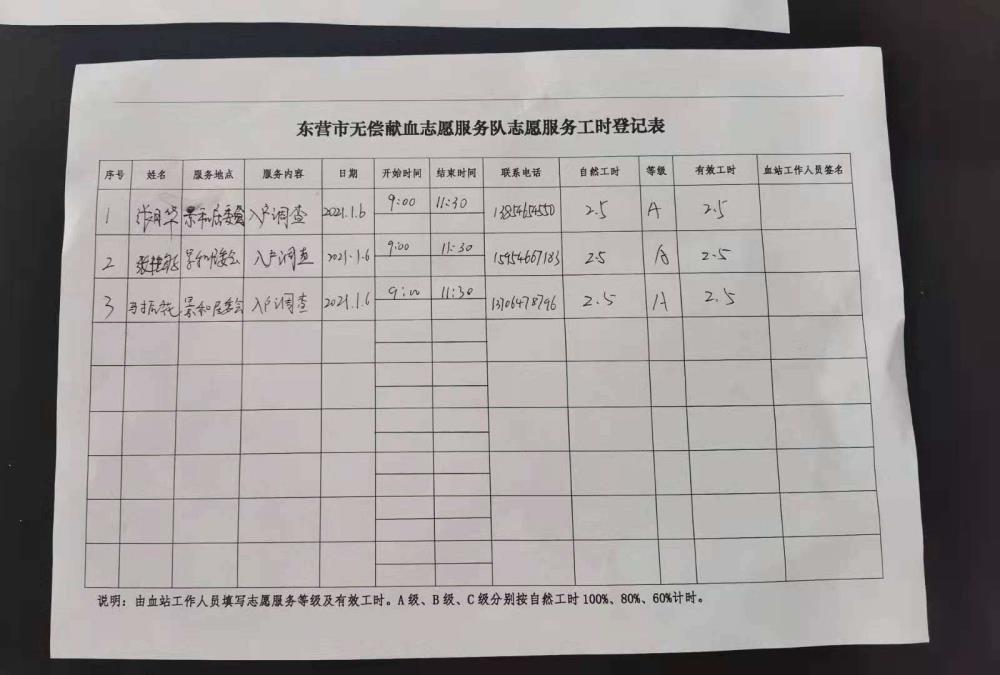 东营市无偿献血志愿服务队志愿服务工时登记表
序号 姓名 服务地点 服务内容 日期 开始时间 结束时间 联系电话 自然工时 等级 有效工时 血站工作人员签名
1 景和居委会 入户调查 2021.1.6 9:00 11:30 13854654550 2.5 A 2.5
2 景和居委会 入户调查 2021.1.6 9:00 11:30 15954667183 2.5 A 2.5
3 景和居委会 入户调查 2021.1.6 9:00 11:30 13106478796 2.5 A 2.5
说明：由血站工作人员填写志愿服务等级及有效工时。A级、B级、C级分别按自然工时100%、80%、60%计时。